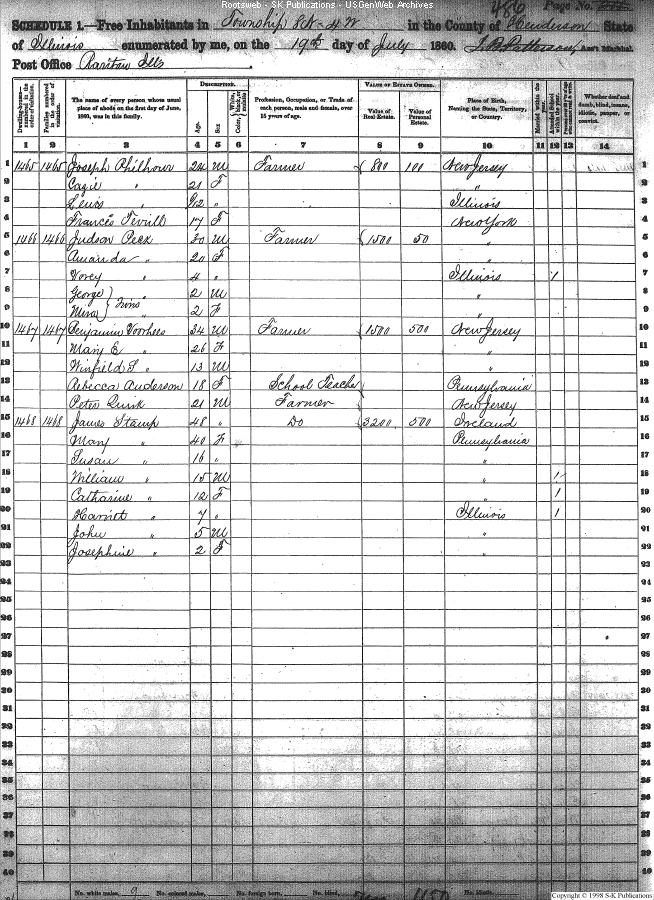 Rootsweb - S-K Publications - USGenWeb Archives
486 Page No.
SCHEDULE 1.—Free Inhabitants in Township 8N - 4W in the County of Henderson State
of Illinois enumerated by me, on the 19th day of July 1860. Ass't Marshal.
Post Office Raritan Ills
Dwelling-houses numbered in the order of visitation. Families numbered in the order of visitation. The name of every person whose usual place of abode on the first day of June, 1860, was in this family. DESCRIPTION. Age. Sex. Color, White, black, or mulatto. Profession, Occupation, or Trade of each person, male and female, over 15 years of age. VALUE OF ESTATE OWNED. Value of Real Estate. Value of Personal Estate. Place of Birth, Naming the State, Territory, or Country. Married within the year. Attended School within the year. Whether deaf and dumb, blind, insane, idiotic, pauper, or convict.
1 2 3 4 5 6 7 8 9 10 11 12 13 14
1 1465 1465 Joseph 24 M Farmer 800 100 New Jersey 1
2 " 21 F " 2
3 Lewis " 9/12 " Illinois 3
4 Frances 17 F New York 4
5 1466 1466 Judson Peck 30 M Farmer 1500 50 " 5
6 Amanda " 20 F " 6
7 " 4 " Illinois 1 7
8 George } " 2 M " 8
9 } Twins " 2 F " 9
10 1467 1467 Benjamin Voorhees 34 M Farmer 1500 500 New Jersey 10
11 Mary E " 26 F " 11
12 Winfield S " 13 M " 12
13 Rebecca Anderson 18 F School Teacher Pennsylvania 13
14 Peter Quick 21 M Farmer New Jersey 14
15 1468 1468 James Stamp 48 " Do 3200 500 Ireland 15
16 Mary " 40 F Pennsylvania 16
17 Susan " 16 " " 17
18 William " 15 M " 1 18
19 Catharine " 12 F " 1 19
20 Harriet " 7 " Illinois 1 20
21 John " 5 M " 21
22 Josephine " 2 F " 22
23 23
24 24
25 25
26 26
27 27
28 28
29 29
30 30
31 31
32 32
33 33
34 34
35 35
36 36
37 37
38 38
39 39
40 40
No. white males, 9 No. colored males, No. foreign born, No. blind, No. idiotic.
Copyright © 1998 S-K Publications